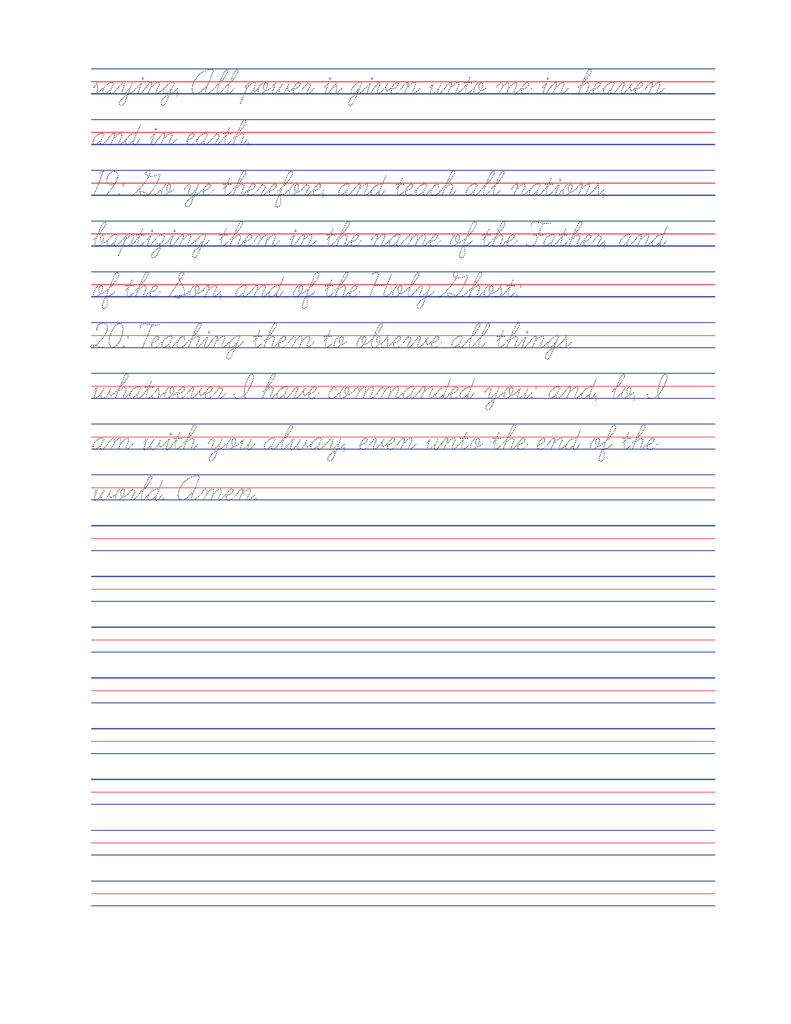 saying, All power is given unto me in heaven
and in earth.
19: Go ye therefore, and teach all nations,
baptizing them in the name of the Father, and
of the Son, and of the Holy Ghost:
20: Teaching them to observe all things
whatsoever I have commanded you: and, lo, I
am with you alway, even unto the end of the
world. Amen.